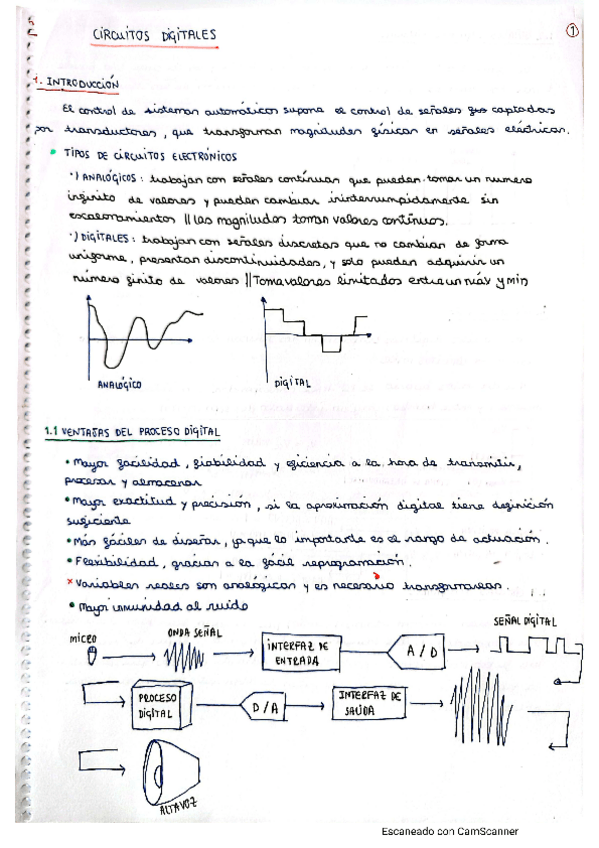 CIRCUITOS DIGITALES
1
1. INTRODUCCIÓN
El control de sistemas automáticos supone el control de señales captadas
por transductores, que transforman magnitudes físicas en señales eléctricas.
TIPOS DE CIRCUITOS ELECTRÓNICOS
·) ANALÓGICOS: trabajan con señales contínuas que pueden tomar un numero
infinito de valores y pueden cambiar ininterrumpidamente sin
escalonamientos || las magnitudes toman valores contínuos.
·) DIGITALES: trabajan con señales discretas que no cambian de forma
uniforme, presentan discontinuidades, y solo pueden adquirir un
número finito de valores || Toma valores limitados entre un máx y min
ANALÓGICO
DIGITAL
1.1 VENTAJAS DEL PROCESO DIGITAL
• Mayor facilidad, fiabilidad y eficiencia a la hora de transmitir,
procesar y almacenar
• Mayor exactitud y precisión, si la aproximación digital tiene definición
suficiente
• Más fáciles de diseñar, ya que lo importante es el rango de actuación.
• Flexibilidad, gracias a la fácil reprogramación.
× Variables reales son analógicas y es necesario transformarlas.
• Mayor inmunidad al ruido
MICRO
ONDA SEÑAL
INTERFAZ DE
ENTRADA
A/D
SEÑAL DIGITAL
PROCESO
DIGITAL
D/A
INTERFAZ DE
SALIDA
ALTAVOZ
Escaneado con CamScanner